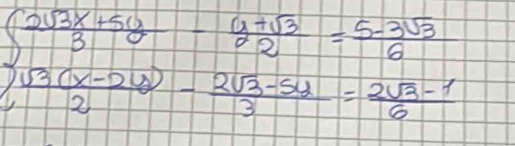 { (2√3x+5y)/3 - (y+√3)/2 = (5-3√3)/6
√3(x-2y)/2 - (2√3-5y)/3 = (2√3-1)/6